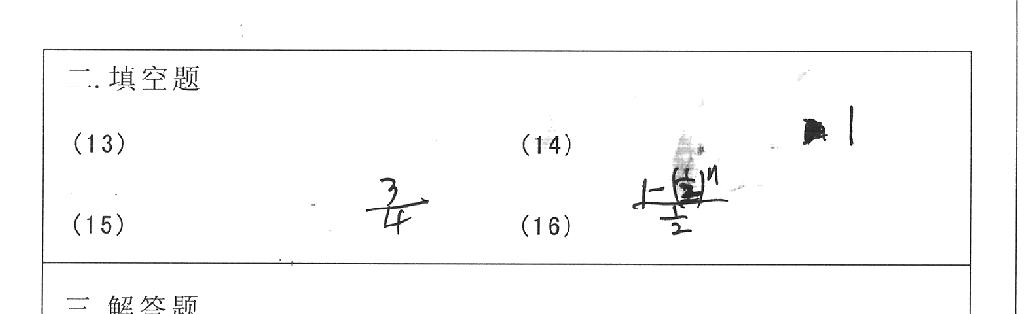 二. 填空题
(13) (14) 1
(15) 3/4 (16) (1-(1/2)^n)/(1/2)
三. 解答题